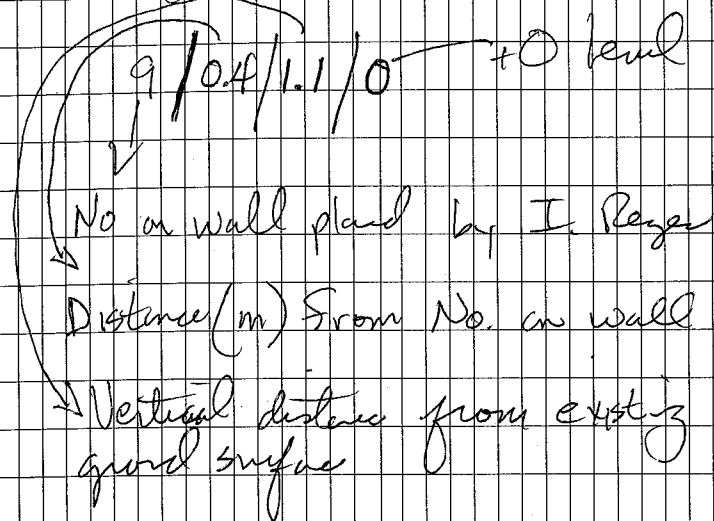 9 / 0.4 / 1.1 / 0 +0 level
No on wall placed by I.
Distance (m) From No. on wall
Vertical distance from existing
ground surface